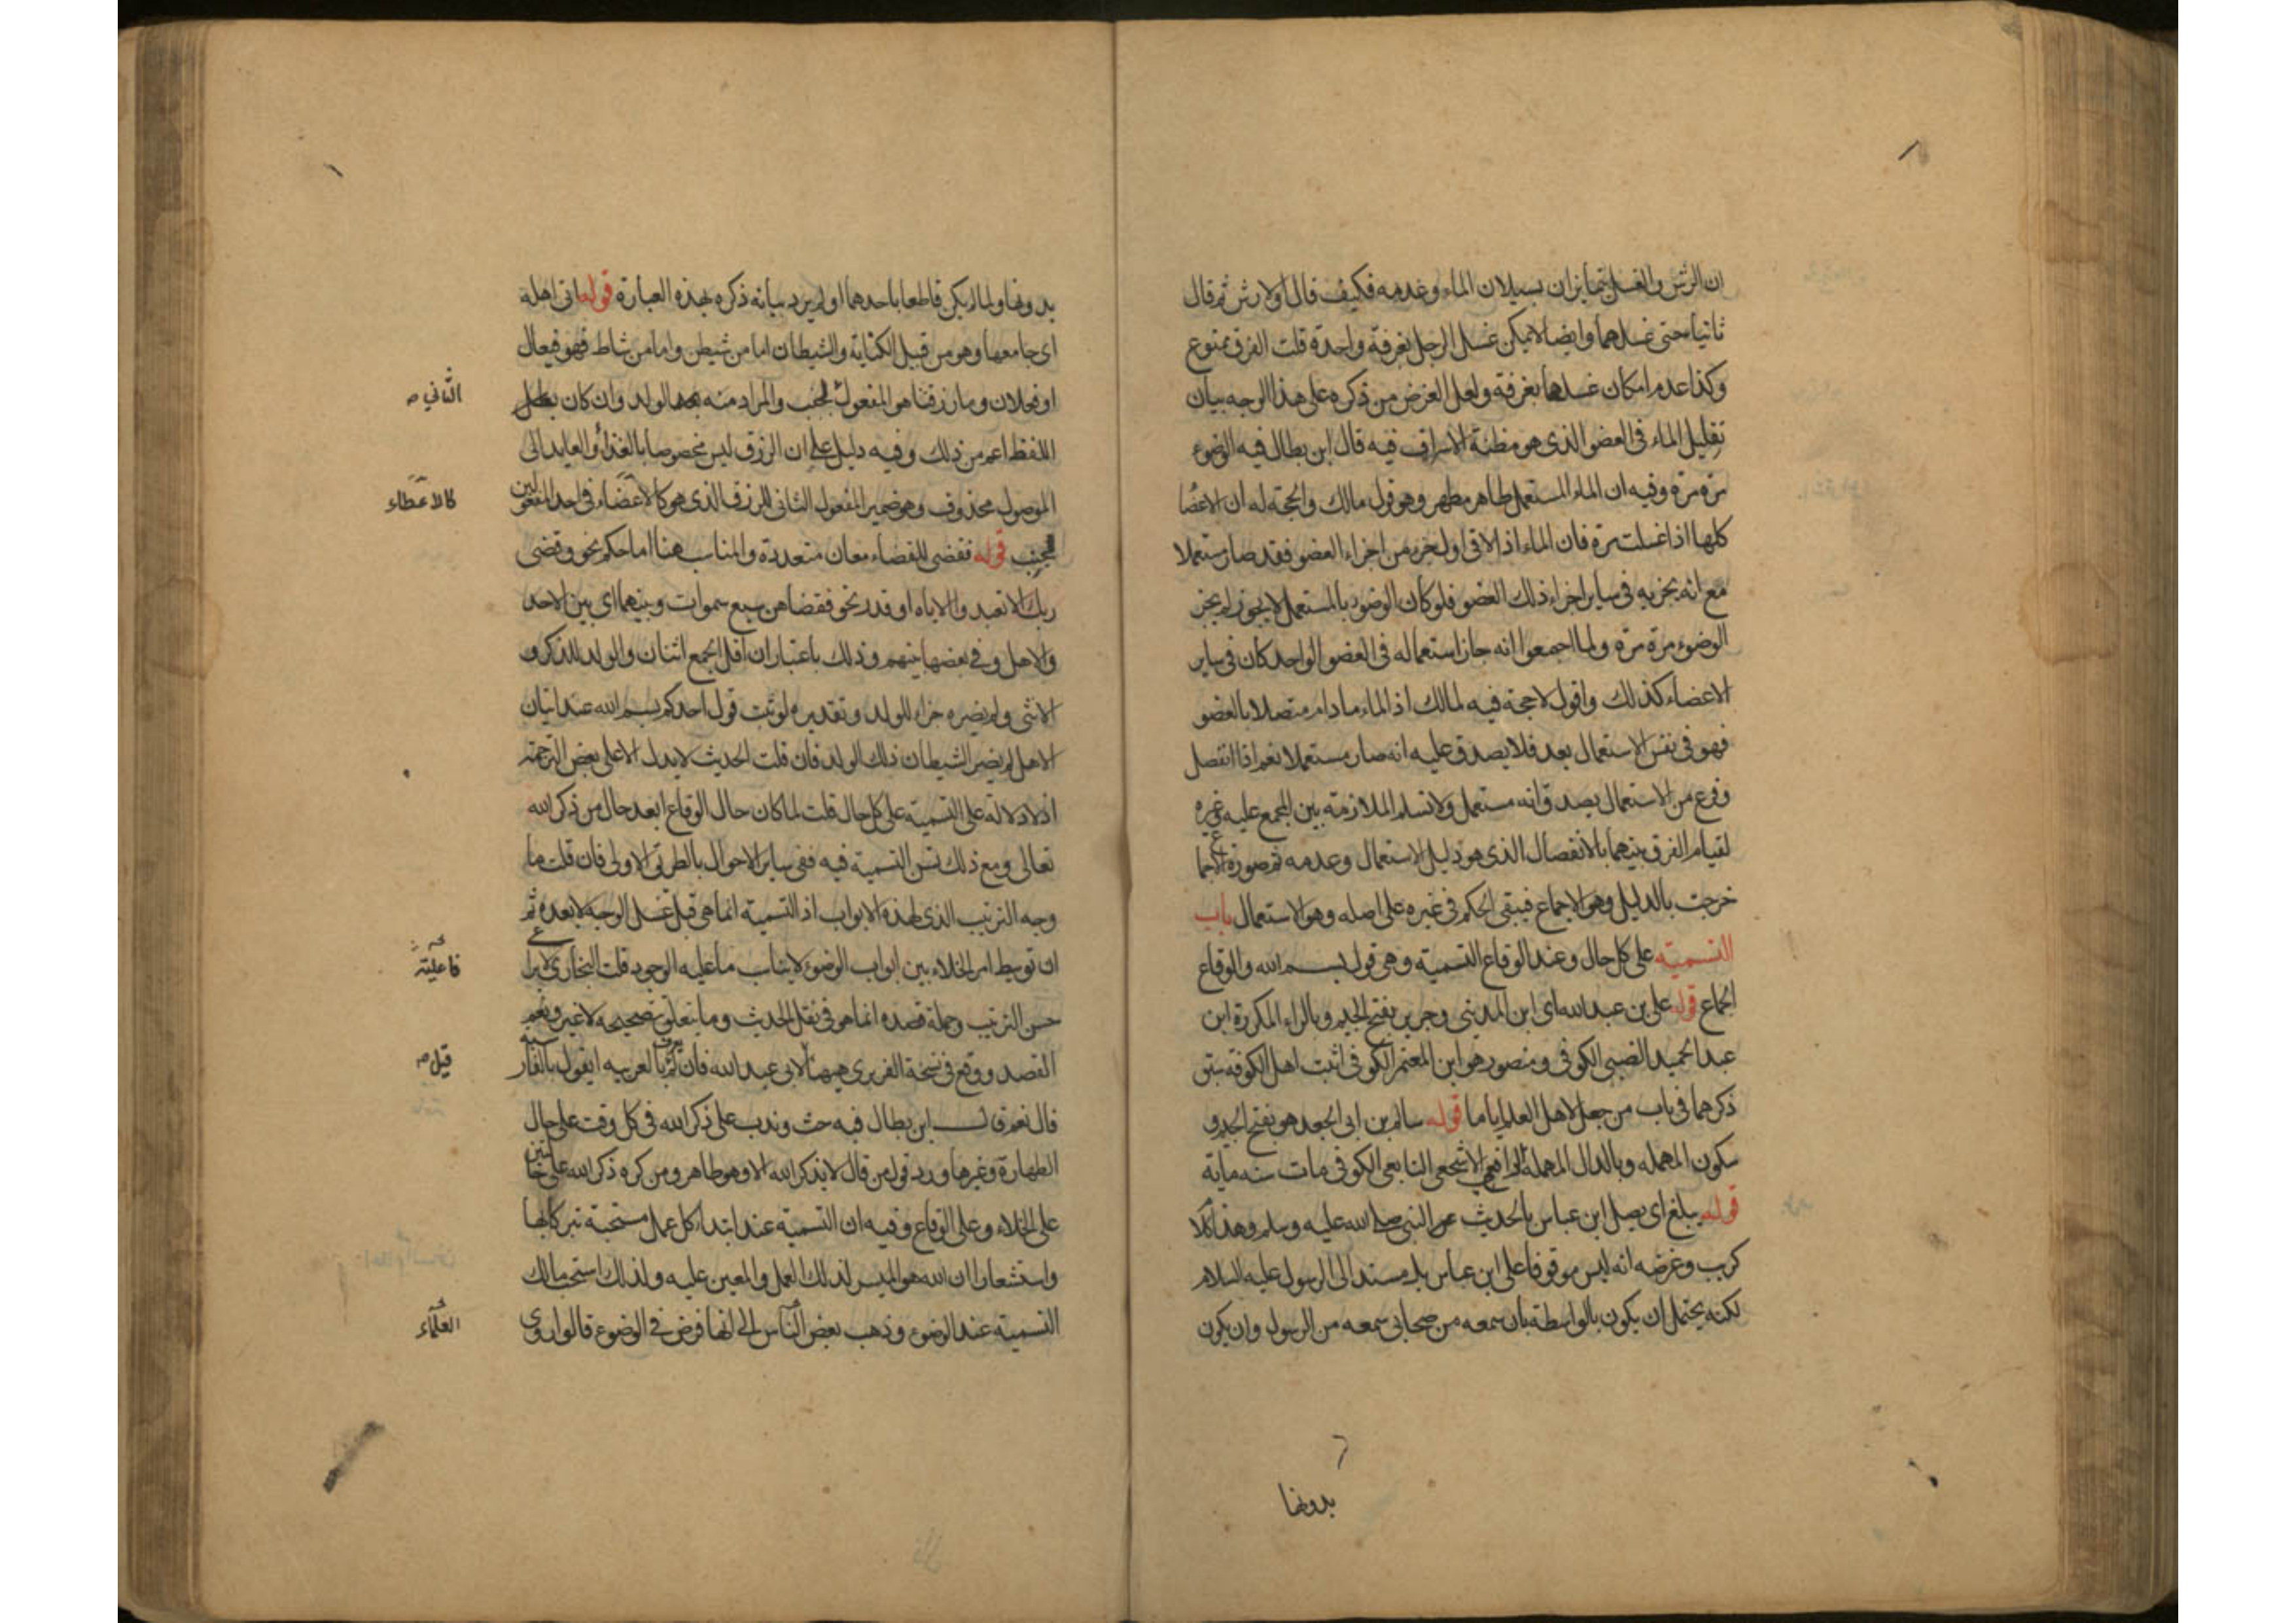 ان الرش والغسل يتمايزان بسيلان الماء وعدمه فكيف قال اولا رش ثم قال
ثانيا حتى غسلهما وايضا لا يمكن غسل الرجل بغرفة واحدة قلت الفرق ممنوع
وكذا عدم امكان غسلها بغرفة ولعل الغرض من ذكره على هذا الوجه بيان
تقليل الماء في العضو الذي هو مظنة الاسراف فيه قال ابن بطال فيه الوضوء
مرة مرة وفيه ان الماء المستعمل طاهر مطهر وهو قول مالك والحجة له ان الاعضا
كلها اذا غسلت مرة فان الماء اذا لاقى اول جزء من اجزاء العضو فقد صار مستعملا
مع انه يجزيه في ساير اجزاء ذلك العضو فلو كان الوضوء بالمستعمل لا يجوز لم يجز
الوضوء مرة مرة ولما اجمعوا انه جاز استعماله في العضو الواحد كان في ساير
الاعضاء كذلك واقول لا حجة فيه لمالك اذ الماء ما دام متصلا بالعضو
فهو في نفس الاستعمال بعد فلا يصدق عليه انه صار مستعملا نعم اذا انفصل
وفرغ من الاستعمال يصدق انه مستعمل ولا نسلم الملازمة بين المجمع عليه وغيره
لقيام الفرق بينهما بالانفصال الذي هو دليل الاستعمال وعدمه ثم صورة الاجماع
خرجت بالدليل وهو الاجماع فيبقى الحكم في غيره على اصله وهو الاستعمال باب
التسمية على كل حال وعند الوقاع التسمية وهي قول بسم الله والوقاع
الجماع قوله علي بن عبدالله اى ابن المديني وجرير بفتح الجيم وبالراء المكررة ابن
عبد الحميد الضبي الكوفي ومنصور هو ابن المعتمر الكوفي اثبت اهل الكوفة سبق
ذكرهما في باب من جعل لاهل العلم اياما قوله سالم بن ابى الجعد هو بفتح الجيم و
سكون المهمله وبالدال المهملة الرافعي الاشجعي التابعي الكوفي مات سنه مائة
قوله يبلغ اى يصل ابن عباس بالحديث عن النبي صلى الله عليه وسلم وهذا كلا
كريب وغرضه انه ليس موقوفا على ابن عباس بل مسند الى الرسول عليه السلام
لكنه يحتمل ان يكون بالواسطة بان سمعه من صحابي سمعه من الرسول وان يكون
بدونها
بدونها ولما لم يكن قاطعا باحدهما او لم يرد بيانه ذكره بهذه العبارة قوله اتى اهله
اى جامعها وهو من قبيل الكناية والشيطان اما من شيطن واما من شاط فهو فيعال
او فعلان وما رزقتنا هو المفعول لجنب والمراد منه الولد وان كان
الثاني صح
اللفظ اعم من ذلك وفيه دليل على ان الرزق ليس مخصوصا بالغذاء والعايد الى
الموصول محذوف وهو ضمير المفعول الثاني للرزق الذي هو كالاعضاء في احد المفعولين
كالاعطاء
لجنب قوله فقضى للقضاء معان متعددة والمناسب هنا اما حكم نحو وقضى
ربك الا تعبدوا الا اياه او قدر نحو فقضاهن سبع سموات وبينهما اى بين الاحد
والاهل وفي بعضها بينهم وذلك باعتبار ان اقل الجمع اثنان والولد للذكر و
الانثى ولم يضره جزاء للولد وتقديره لو ثبت قول احدكم بسم الله عند اتيان
الاهل لم يضر الشيطان ذلك الولد فان قلت الحديث لا يدل الا على بعض الترجمة
اذ لا دلالة على التسمية على كل حال قلت لما كان حال الوقاع ابعد حال من ذكر الله
تعالى ومع ذلك تسن التسمية فيه ففي ساير الاحوال بالطريق الاولى فان قلت ما
وجه الترتيب الذي لهذه الابواب اذ التسمية انما هي قبل غسل الوجه لا بعده ثم
ان توسيط امر الخلاء بين ابواب الوضوء لا يناسب ما عليه الوجود قلت البخاري لا يراعى
فاعليته
حسن الترتيب وجملة قصده انما هو في نقل الحديث وما يتعلق بتصحيحه لا غير ونعم
القصد ووقع في نسخة الفربري ههنا لابى عبدالله فان لم يعرف بالعربيه ايقول بالفارسية
قيل صح
قال نعم قال ابن بطال فيه حث وندب على ذكر الله في كل وقت على حال
الطهارة وغيرها ورد قول من قال لا يذكر الله الا وهو طاهر ومن كره ذكر الله على حالتين
على الخلاء وعلى الوقاع وفيه ان التسمية عند ابتداء كل عمل مستحبة تبركا بها
واستشعارا ان الله هو الميسر لذلك العمل والمعين عليه ولذلك استحب مالك
التسمية عند الوضوء وذهب بعض الناس الى انها فرض في الوضوء قالوا روى
العلماء